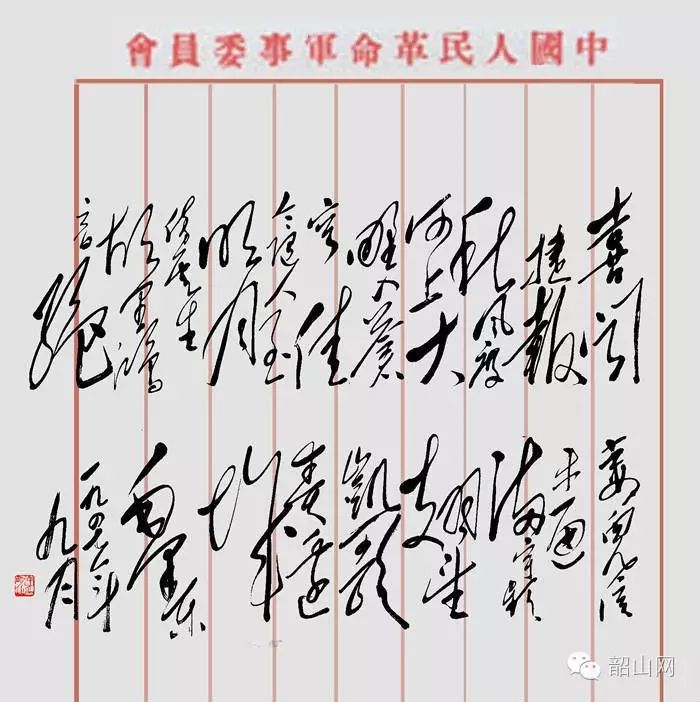 中國人民革命軍事委員會
喜聞
捷報
秋風度
河上大
野入蒼
穹佳
令随人至
明月
傍雲生
故里鴻
音絕
妻兒信
未通
滿宇頻
翹望
凱歌
奏邊
城
毛澤東
一九四七年
九月
韶山网